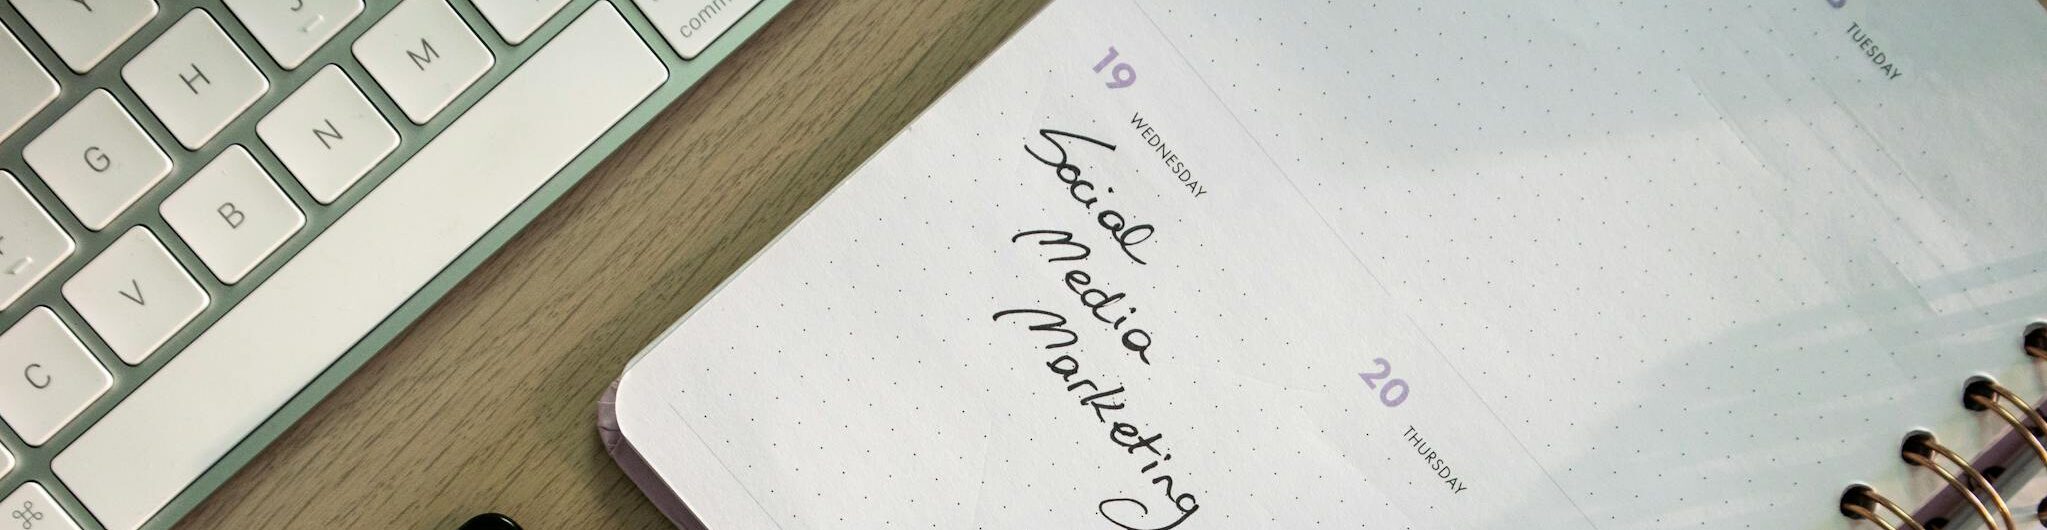 comm
Y
H
M
G
N
B
V
C
⌘
TUESDAY
19
WEDNESDAY
Social
Media
Marketing
20
THURSDAY